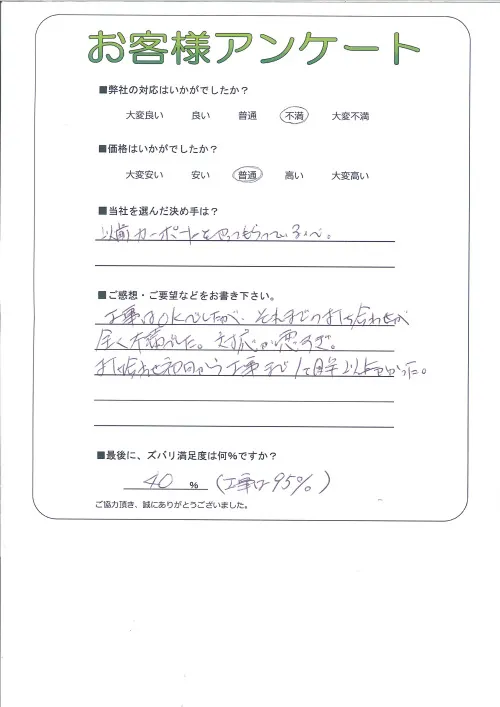 お客様アンケート
■弊社の対応はいかがでしたか？
大変良い 良い 普通 不満 大変不満
■価格はいかがでしたか？
大変安い 安い 普通 高い 大変高い
■当社を選んだ決め手は？
以前カーポートをやってもらっている為。
■ご感想・ご要望などをお書き下さい。
工事はOKでしたが、それまでの打ち合わせが
全く不満でした。対応が悪すぎ。
打ち合わせ初回から工事まで1ヶ月半以上かかった。
■最後に、ズバリ満足度は何％ですか？
40 % (工事は95%)
ご協力頂き、誠にありがとうございました。